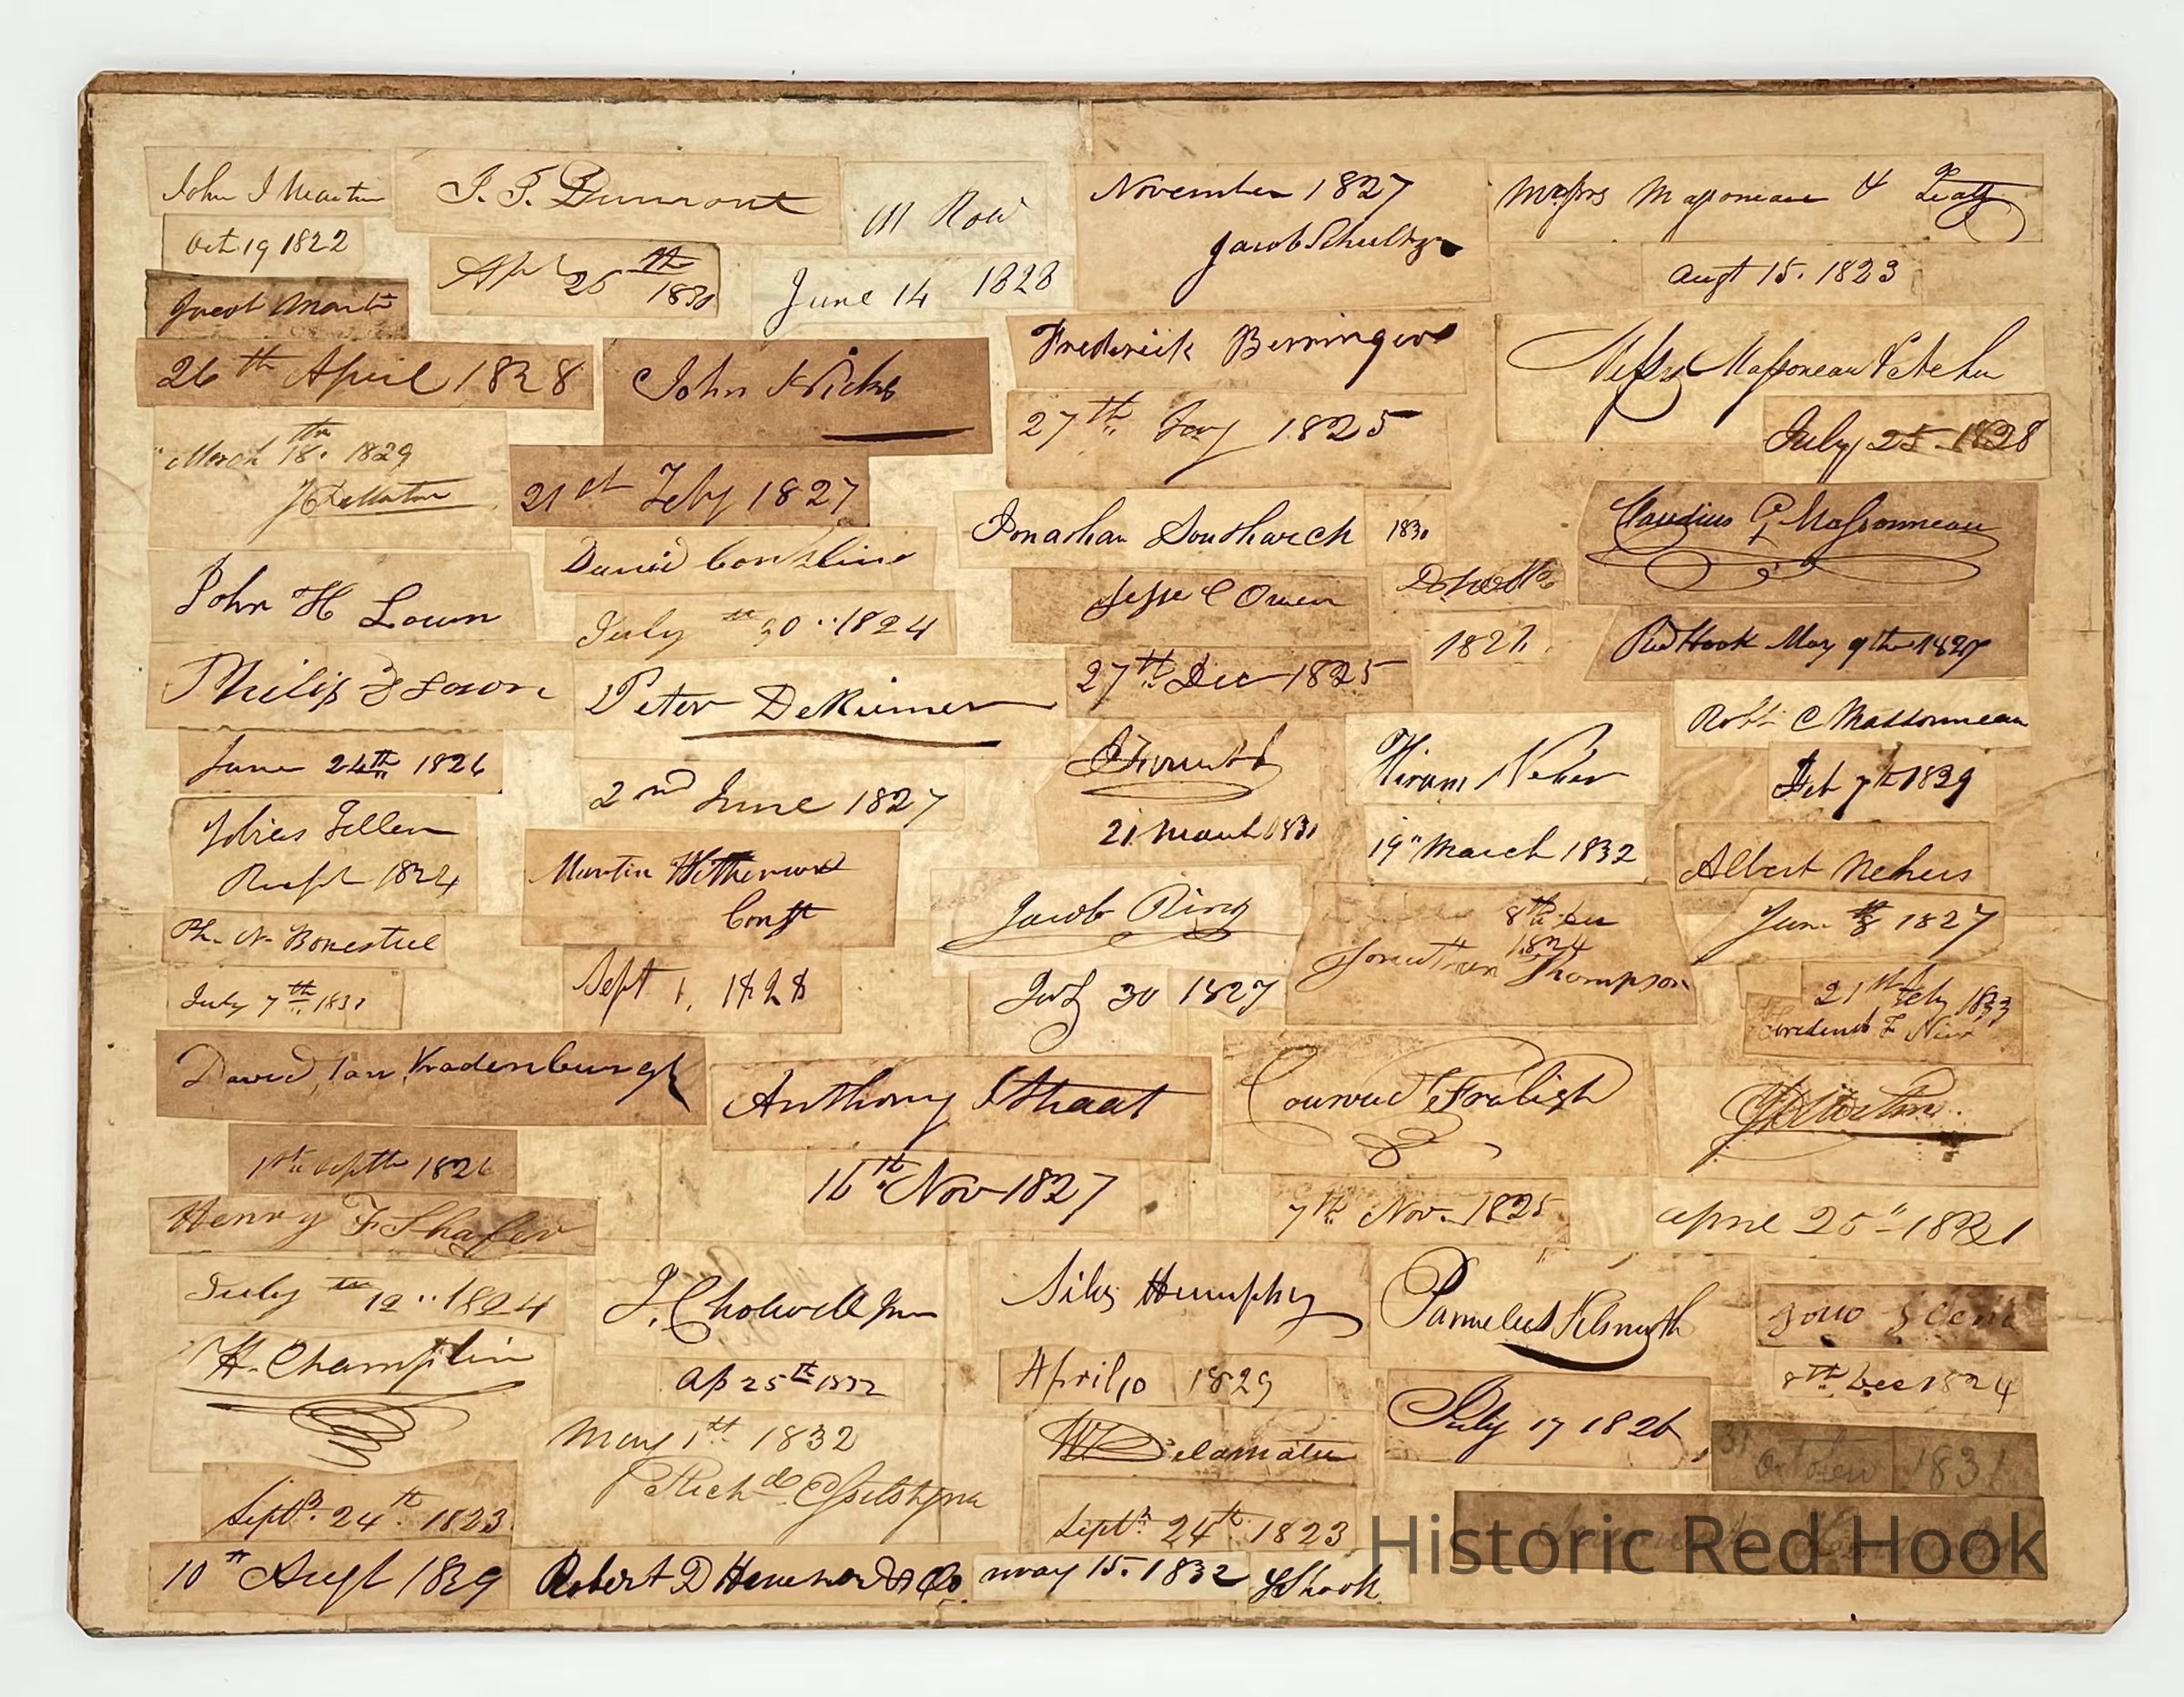 John J Martin
Oct 19 1822
Jacob Marti
26th April 1828
March 18th 1829
John H Lown
Philip Lown
June 24th 1826
Tobias Teller
1824
Ph. N. Bonesteel
July 7th 1831
David Van Vradenburgh
1st 1826
Henry F Shafer
July 12th 1824
H. Champlin
Septr. 24th. 1823
10th Augt 1829
Dumont
Apl 25th 1830
John
21st Feby 1827
David Conkling
July 20th 1824
Peter DeRiemer
2nd June 1827
Martin Witherwax
Const
Sept 1, 1828
Anthony Straat
16th Nov 1827
Cholwell Jun
Ap 25th 1832
May 1st 1832
Richd
Robert D & Co.
M Row
June 14 1828
November 1827
Jacob
Frederick Berringer
27th 1825
Jonathan Southwick 1830
Jesse C Owen
27th Dec 1825
21 March 1831
Jacob Ring
July 30 1827
8th Dec
1824
Jonathan Thompson
Conrad Fraligh
7th Nov. 1825
Silas Humphry
April 10 1829
Delamater
Septr. 24th. 1823
may 15. 1832
Shook
Hiram Neher
19" March 1832
July 17 1826
Messrs Massoneau &
augt 15. 1823
Messrs Massoneau &
July 25 1828
Claudius G Massonneau
Red Hook May 9th
Robt C Massonneau
Feb 7th 1829
Albert Nehers
June 8 1827
21st Feby 1833
April 25th 1821
8th Dec 1824
31 October 1831
Historic Red Hook